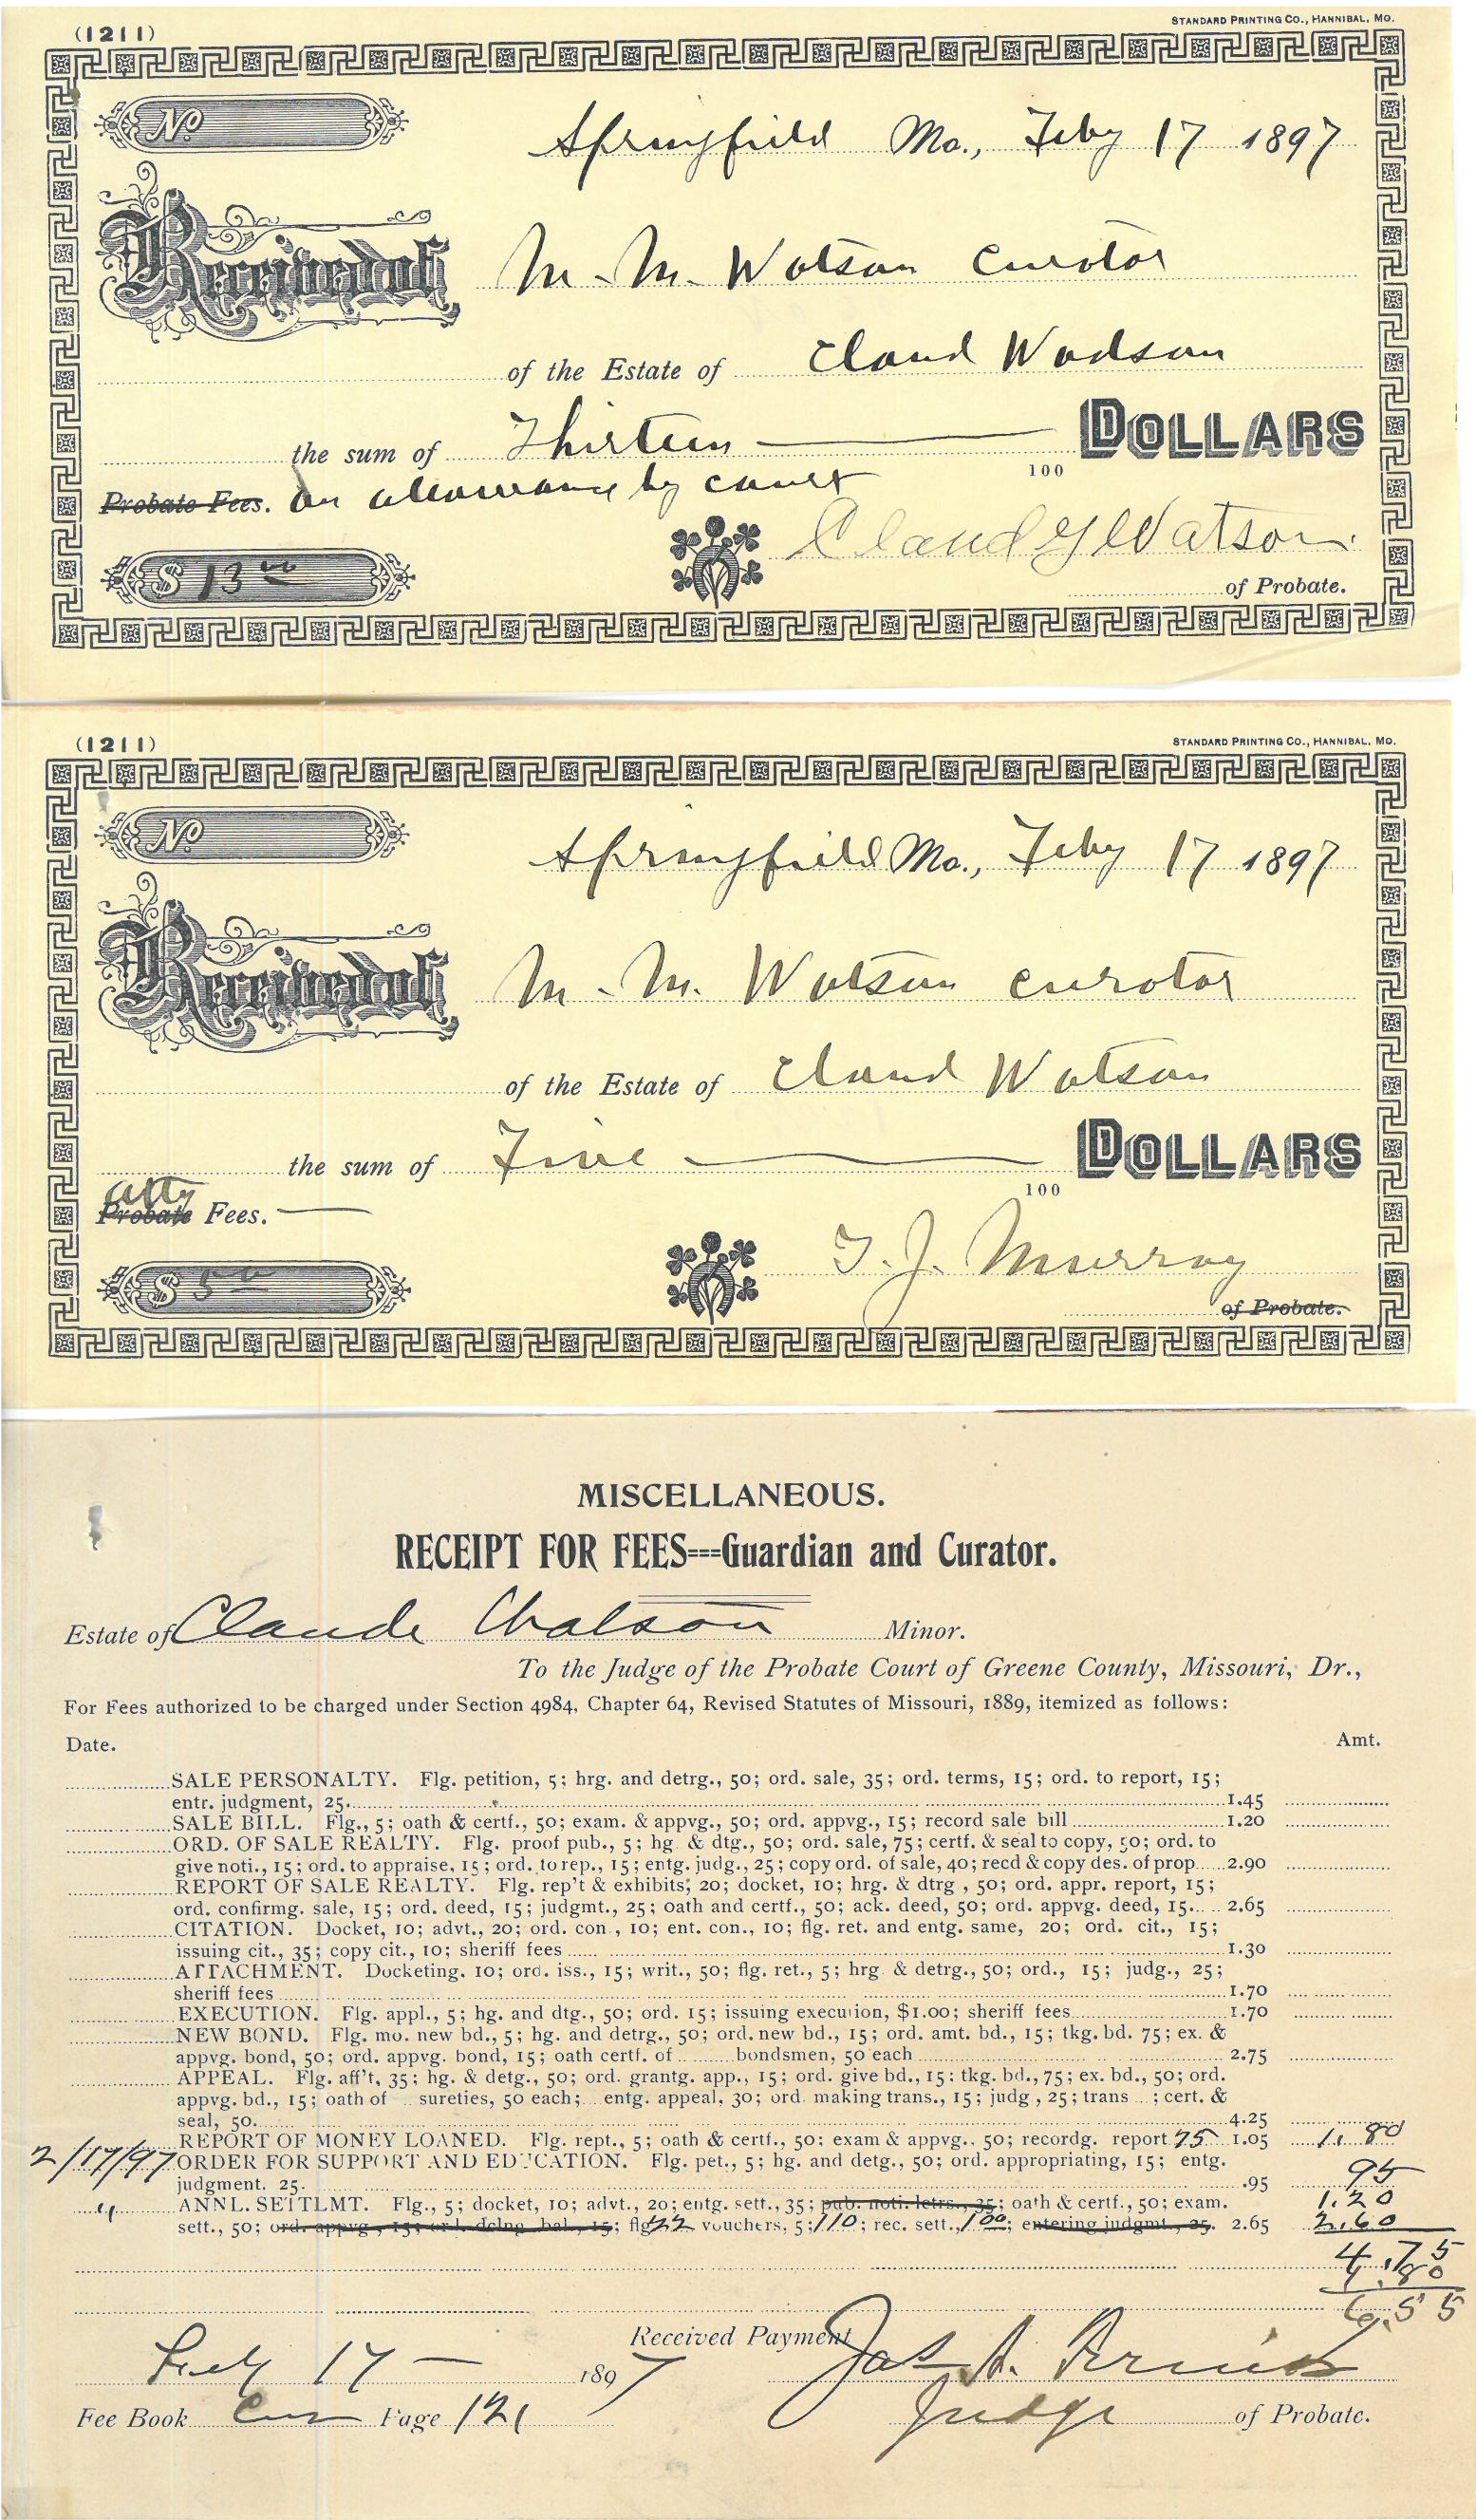 (1211)
STANDARD PRINTING CO., HANNIBAL, MO.
No
Springfield Mo., Feby 17 1897
Received of M. M. Watson Curator
of the Estate of Claud Wadson
the sum of Thirteen DOLLARS
100
Probate Fees. On allowance by court
Claud Y Watson.
$ 13 00
of Probate.
(1211)
STANDARD PRINTING CO., HANNIBAL, MO.
No
Springfield Mo., Feby 17 1897
Received of M. M. Watson curator
of the Estate of Claud Watson
the sum of Five DOLLARS
100
atty
Probate Fees.
T. J. Murray
$ 5 00
of Probate.
MISCELLANEOUS.
RECEIPT FOR FEES---Guardian and Curator.
Estate of Claude Watson Minor.
To the Judge of the Probate Court of Greene County, Missouri, Dr.,
For Fees authorized to be charged under Section 4984, Chapter 64, Revised Statutes of Missouri, 1889, itemized as follows:
Date. Amt.
SALE PERSONALTY. Flg. petition, 5; hrg. and detrg., 50; ord. sale, 35; ord. terms, 15; ord. to report, 15;
entr. judgment, 25. 1.45
SALE BILL. Flg., 5; oath & certf., 50; exam. & appvg., 50; ord. appvg., 15; record sale bill 1.20
ORD. OF SALE REALTY. Flg. proof pub., 5; hg. & dtg., 50; ord. sale, 75; certf. & seal to copy, 50; ord. to
give noti., 15; ord. to appraise, 15; ord. to rep., 15; entg. judg., 25; copy ord. of sale, 40; recd & copy des. of prop. 2.90
REPORT OF SALE REALTY. Flg. rep't & exhibits, 20; docket, 10; hrg. & dtrg, 50; ord. appr. report, 15;
ord. confirmg. sale, 15; ord. deed, 15; judgmt., 25; oath and certf., 50; ack. deed, 50; ord. appvg. deed, 15. 2.65
CITATION. Docket, 10; advt., 20; ord. con., 10; ent. con., 10; flg. ret. and entg. same, 20; ord. cit., 15;
issuing cit., 35; copy cit., 10; sheriff fees 1.30
ATTACHMENT. Docketing. 10; ord. iss., 15; writ., 50; flg. ret., 5; hrg. & detrg., 50; ord., 15; judg., 25;
sheriff fees 1.70
EXECUTION. Flg. appl., 5; hg. and dtg., 50; ord. 15; issuing execution, $1.00; sheriff fees 1.70
NEW BOND. Flg. mo. new bd., 5; hg. and detrg., 50; ord. new bd., 15; ord. amt. bd., 15; tkg. bd. 75; ex. &
appvg. bond, 50; ord. appvg. bond, 15; oath certf. of bondsmen, 50 each 2.75
APPEAL. Flg. aff't, 35; hg. & detg., 50; ord. grantg. app., 15; ord. give bd., 15; tkg. bd., 75; ex. bd., 50; ord.
appvg. bd., 15; oath of sureties, 50 each; entg. appeal, 30; ord. making trans., 15; judg, 25; trans ; cert. &
seal, 50. 4.25
REPORT OF MONEY LOANED. Flg. rept., 5; oath & certf., 50; exam & appvg., 50; recordg. report 75 1.05 1.80
2/17/97 ORDER FOR SUPPORT AND EDUCATION. Flg. pet., 5; hg. and detg., 50; ord. appropriating, 15; entg.
judgment. 25. .95 95
" ANNL. SETTLMT. Flg., 5; docket, 10; advt., 20; entg. sett., 35; pub. noti. letrs., 35; oath & certf., 50; exam. 1.20
sett., 50; ord. appvg., 15; ord. delng. bal., 15; flg 22 vouchers, 5; 110; rec. sett., 1 00; entering judgmt., 25. 2.65 2.60
4.75
1.80
6.55
Received Payment Jas
Feby 17 1897
Fee Book Cur Page 121
Judge of Probate.